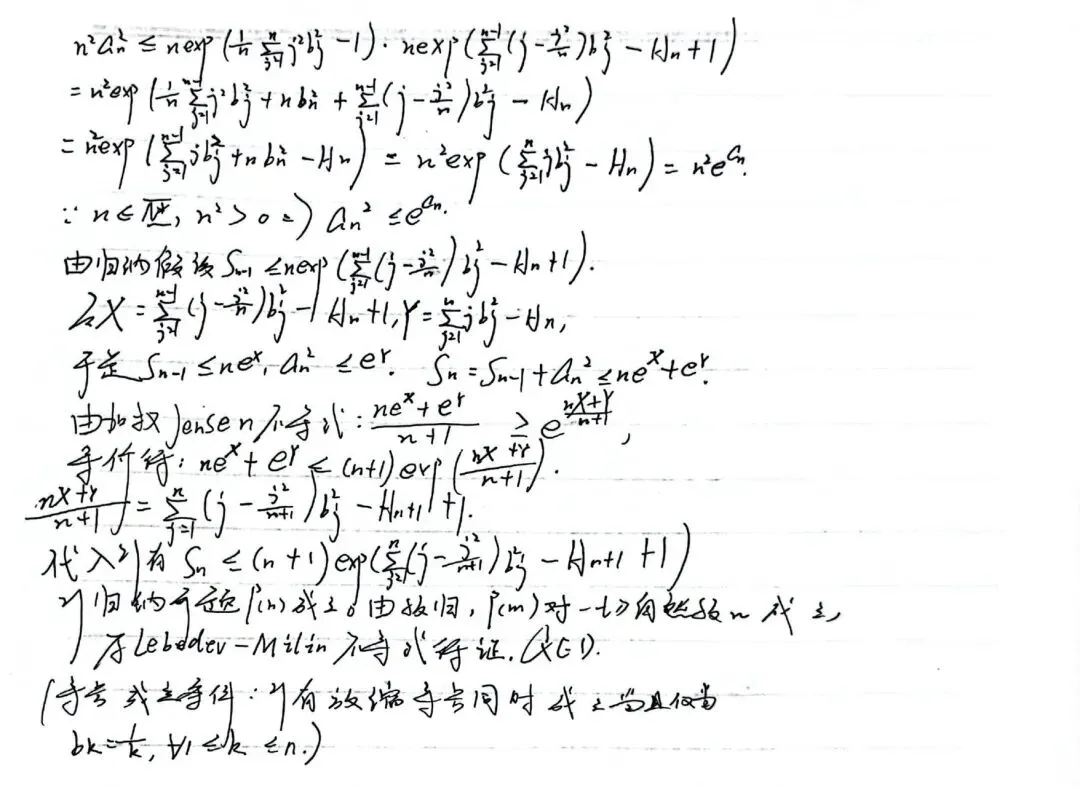 n²aₙ² ≤ n exp(1/n ∑_{j=1}^{n} j²b_j² − 1) · n exp(∑_{j=1}^{n-1}(j − j²/n)b_j² − Hₙ + 1)
= n² exp(1/n ∑_{j=1}^{n-1} j²b_j² + nbₙ² + ∑_{j=1}^{n-1}(j − j²/n)b_j² − Hₙ)
= n² exp(∑_{j=1}^{n-1} jb_j² + nbₙ² − Hₙ) = n² exp(∑_{j=1}^{n} jb_j² − Hₙ) = n²e^{Cₙ}.
∵ n∈ , n² > 0 ⇒ aₙ² ≤ e^{Cₙ}.
由归纳假设 S_{n-1} ≤ n exp(∑_{j=1}^{n-1}(j − j²/n)b_j² − Hₙ + 1).
令X = ∑_{j=1}^{n-1}(j − j²/n)b_j² − Hₙ + 1, Y = ∑_{j=1}^{n} jb_j² − Hₙ,
于是 S_{n-1} ≤ ne^X, aₙ² ≤ e^Y. Sₙ = S_{n-1} + aₙ² ≤ ne^X + e^Y.
由加权Jensen不等式: (ne^X + e^Y)/(n+1) ≥ e^{(nX+Y)/(n+1)},
等价得: ne^X + e^Y ≤ (n+1) exp((nX+Y)/(n+1)).
(nX+Y)/(n+1) = ∑_{j=1}^{n}(j − j²/(n+1))b_j² − H_{n+1} + 1.
代入则有 Sₙ ≤ (n+1) exp(∑_{j=1}^{n}(j − j²/(n+1))b_j² − H_{n+1} + 1)
则归纳命题P(n)成立。由数归, P(n)对一切自然数n成立,
原Lebedev-Milin不等式得证. QED.
(等号成立条件: 所有放缩等号同时成立当且仅当
bk = 1/k, ∀1 ≤ k ≤ n.)